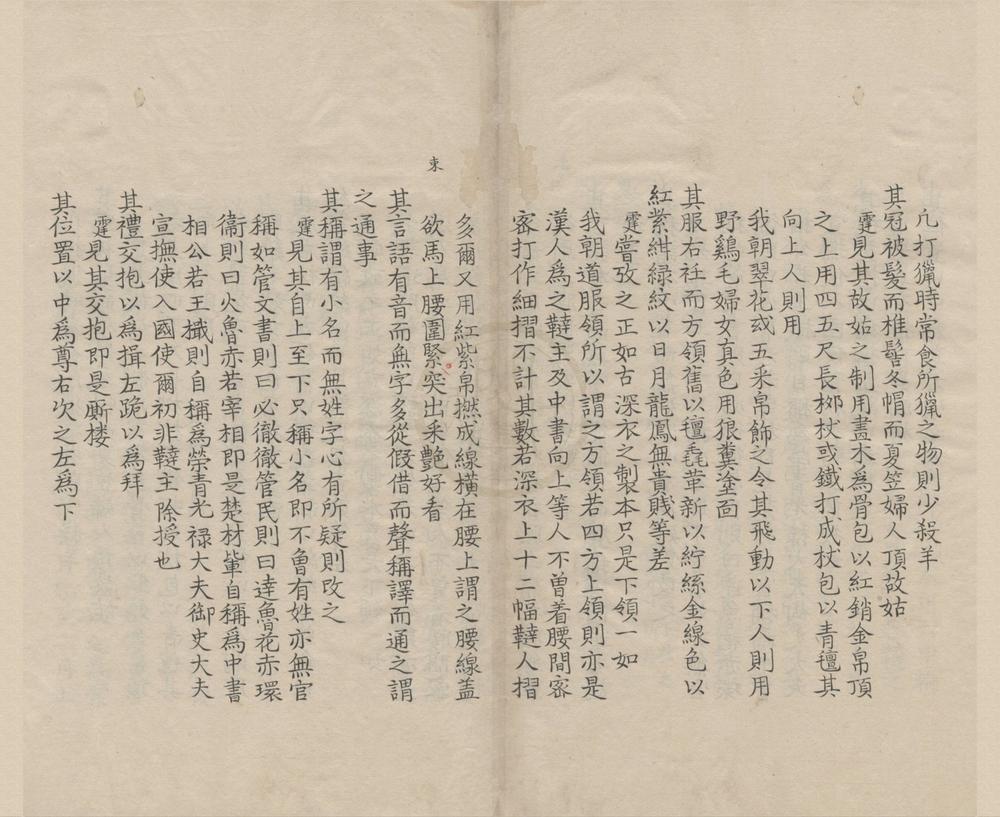 凢打獵時常食所獵之物則少殺羊
其冠被髮而椎髻冬帽而夏笠婦人頂故姑
霆見其故姑之制用畫木爲骨包以紅銷金帛頂
之上用四五尺長栁杖或鐵打成杖包以青氊其
向上人則用
我朝翠花或五采帛飾之令其飛動以下人則用
野鷄毛婦女真色用狼糞塗面
其服右衽而方領舊以氊毳革新以紵絲金線色以
紅紫紺緑紋以日月龍鳳無貴賤等差
霆嘗攷之正如古深衣之製本只是下領一如
我朝道服領所以謂之方領若四方上領則亦是
漢人爲之韃主及中書向上等人不曽着腰間宻
宻打作細摺不計其數若深衣上十二幅韃人摺
多爾又用紅紫帛撚成線橫在腰上謂之腰線盖
欲馬上腰圍緊突出采艷好看
束
其言語有音而無字多從假借而聲稱譯而通之謂
之通事
其稱謂有小名而無姓字心有所疑則改之
霆見其自上至下只稱小名即不曽有姓亦無官
稱如管文書則曰必徹徹管民則曰達魯花赤環
衞則曰火魯赤若宰相即是楚材輩自稱爲中書
相公若王檝則自稱爲榮青光禄大夫御史大夫
宣撫使入國使爾初非韃主除授也
其禮交抱以爲揖左跪以爲拜
霆見其交抱即是厮㩳
其位置以中爲尊右次之左爲下